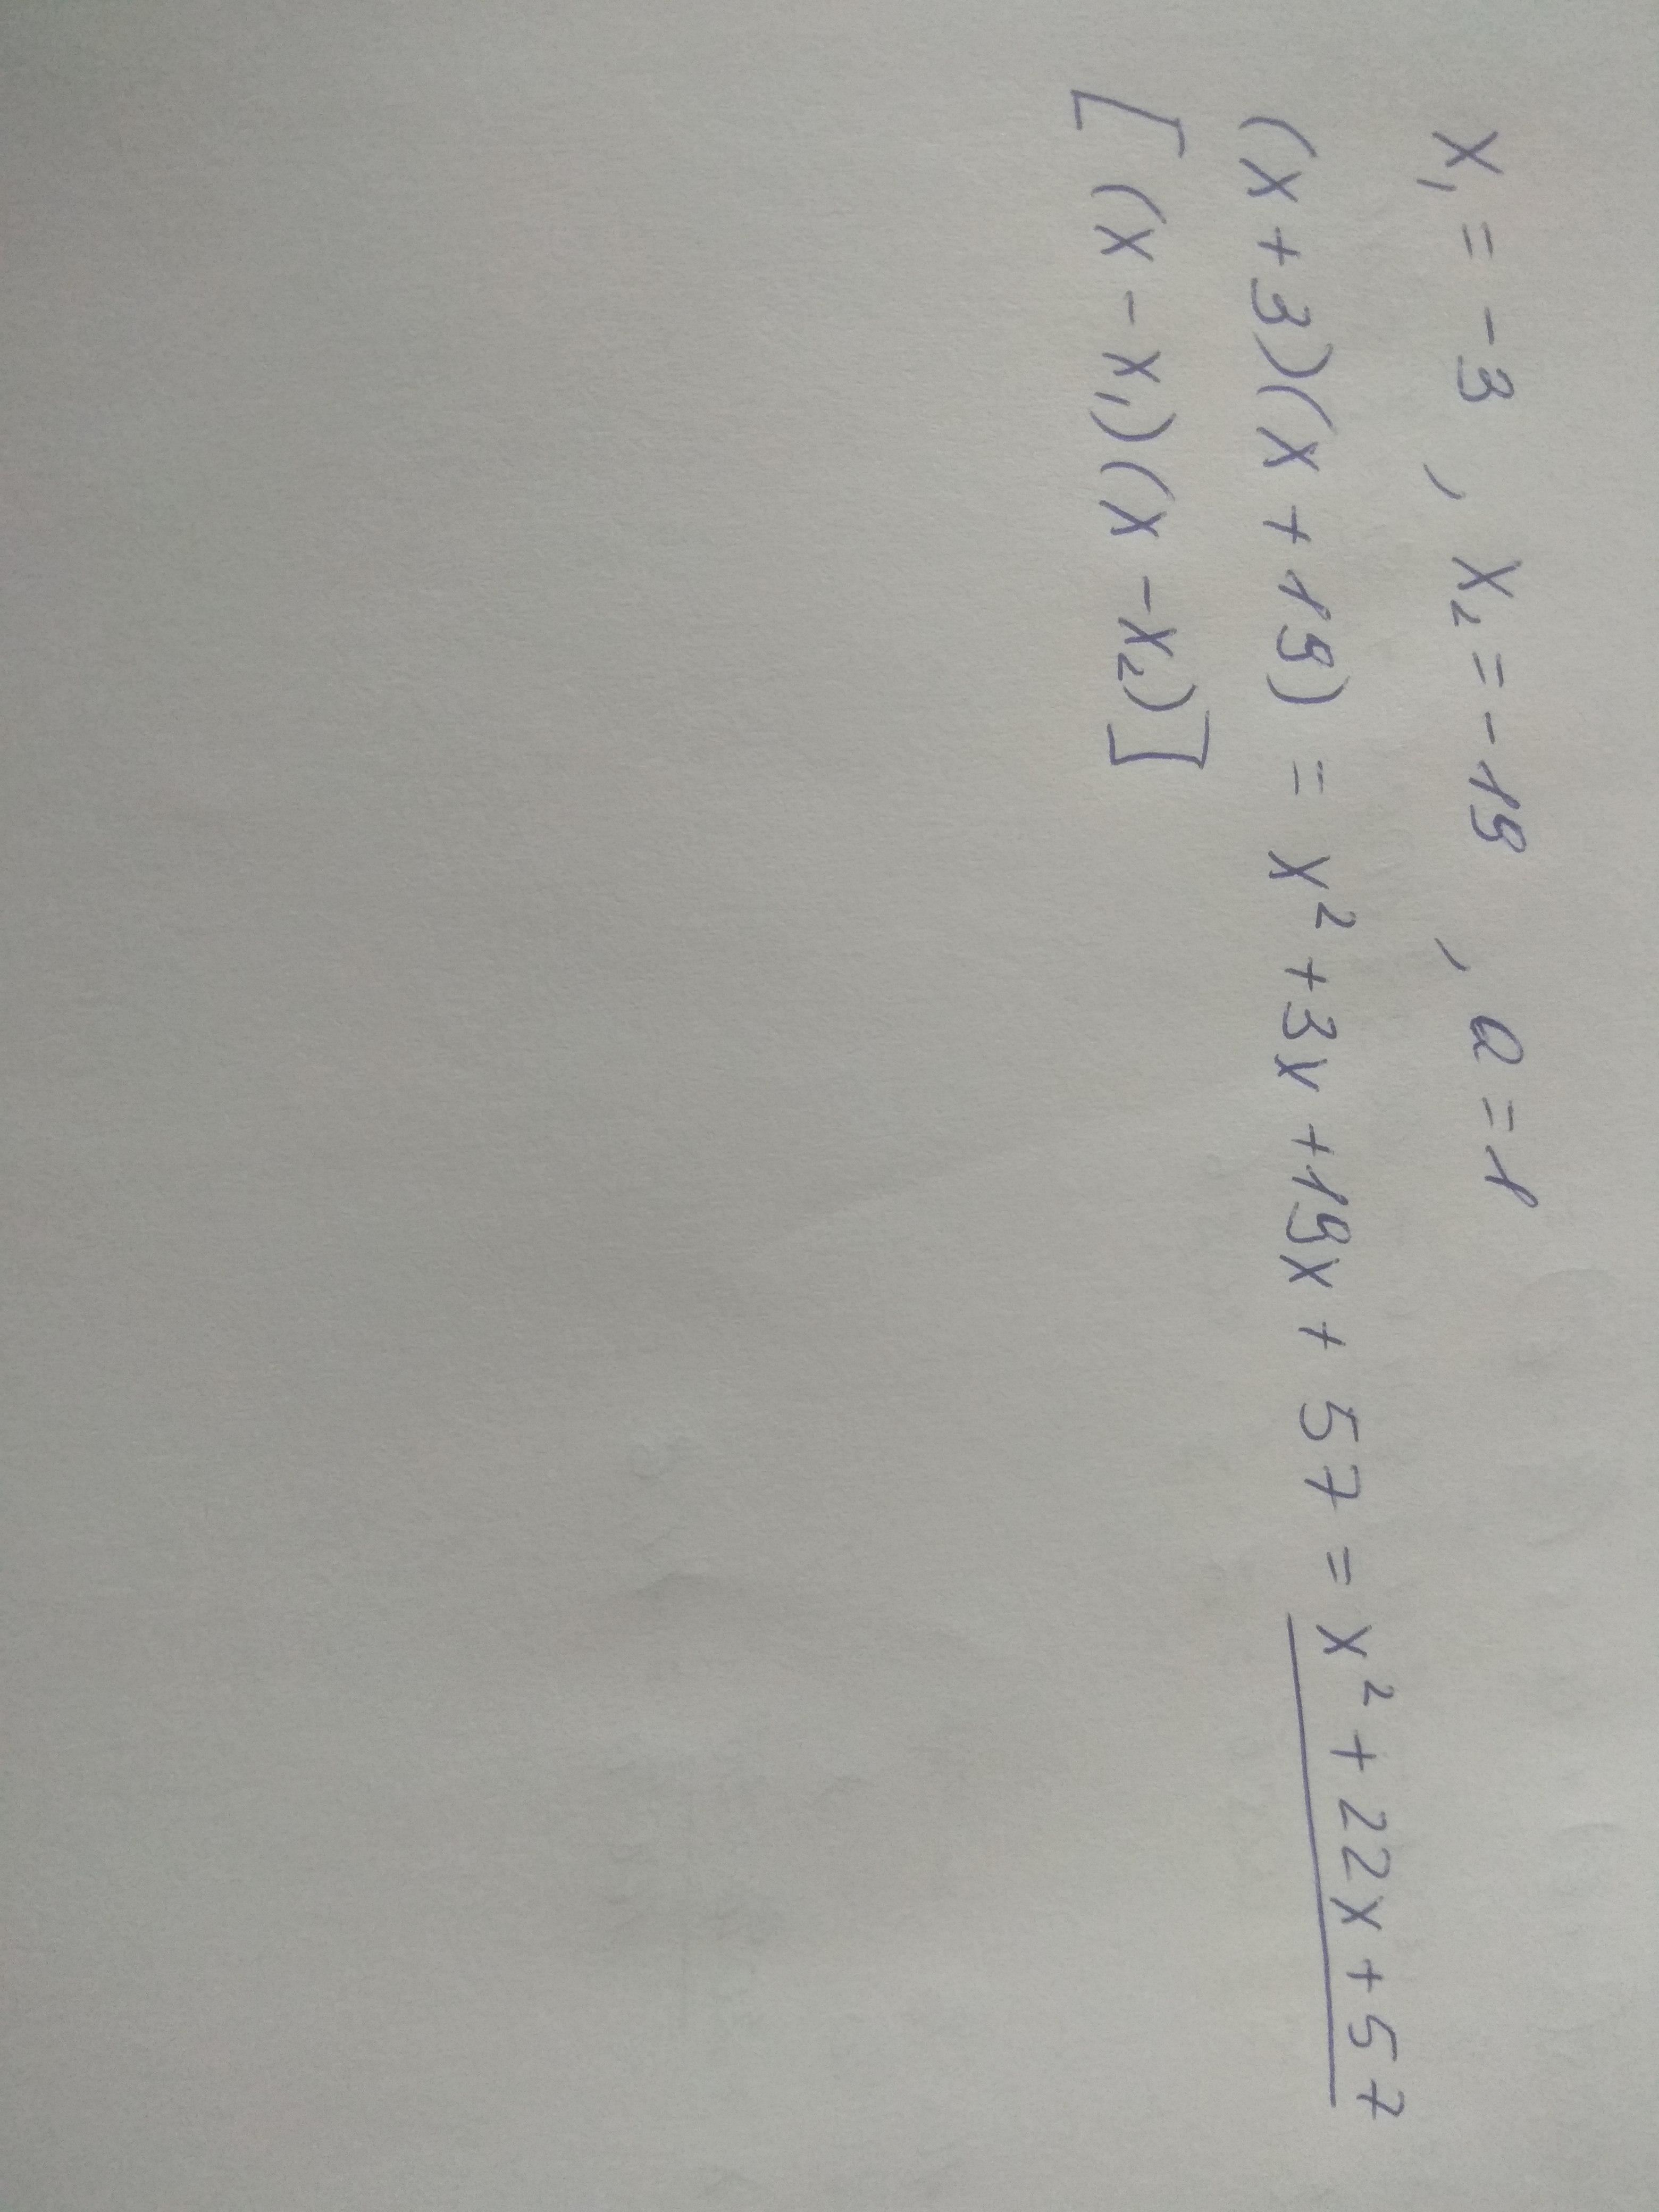 x₁ = -3 , x₂ = -19 , a = 1
(x + 3)(x + 19) = x² + 3x + 19x + 57 = x² + 22x + 57
[(x - x₁)(x - x₂)]